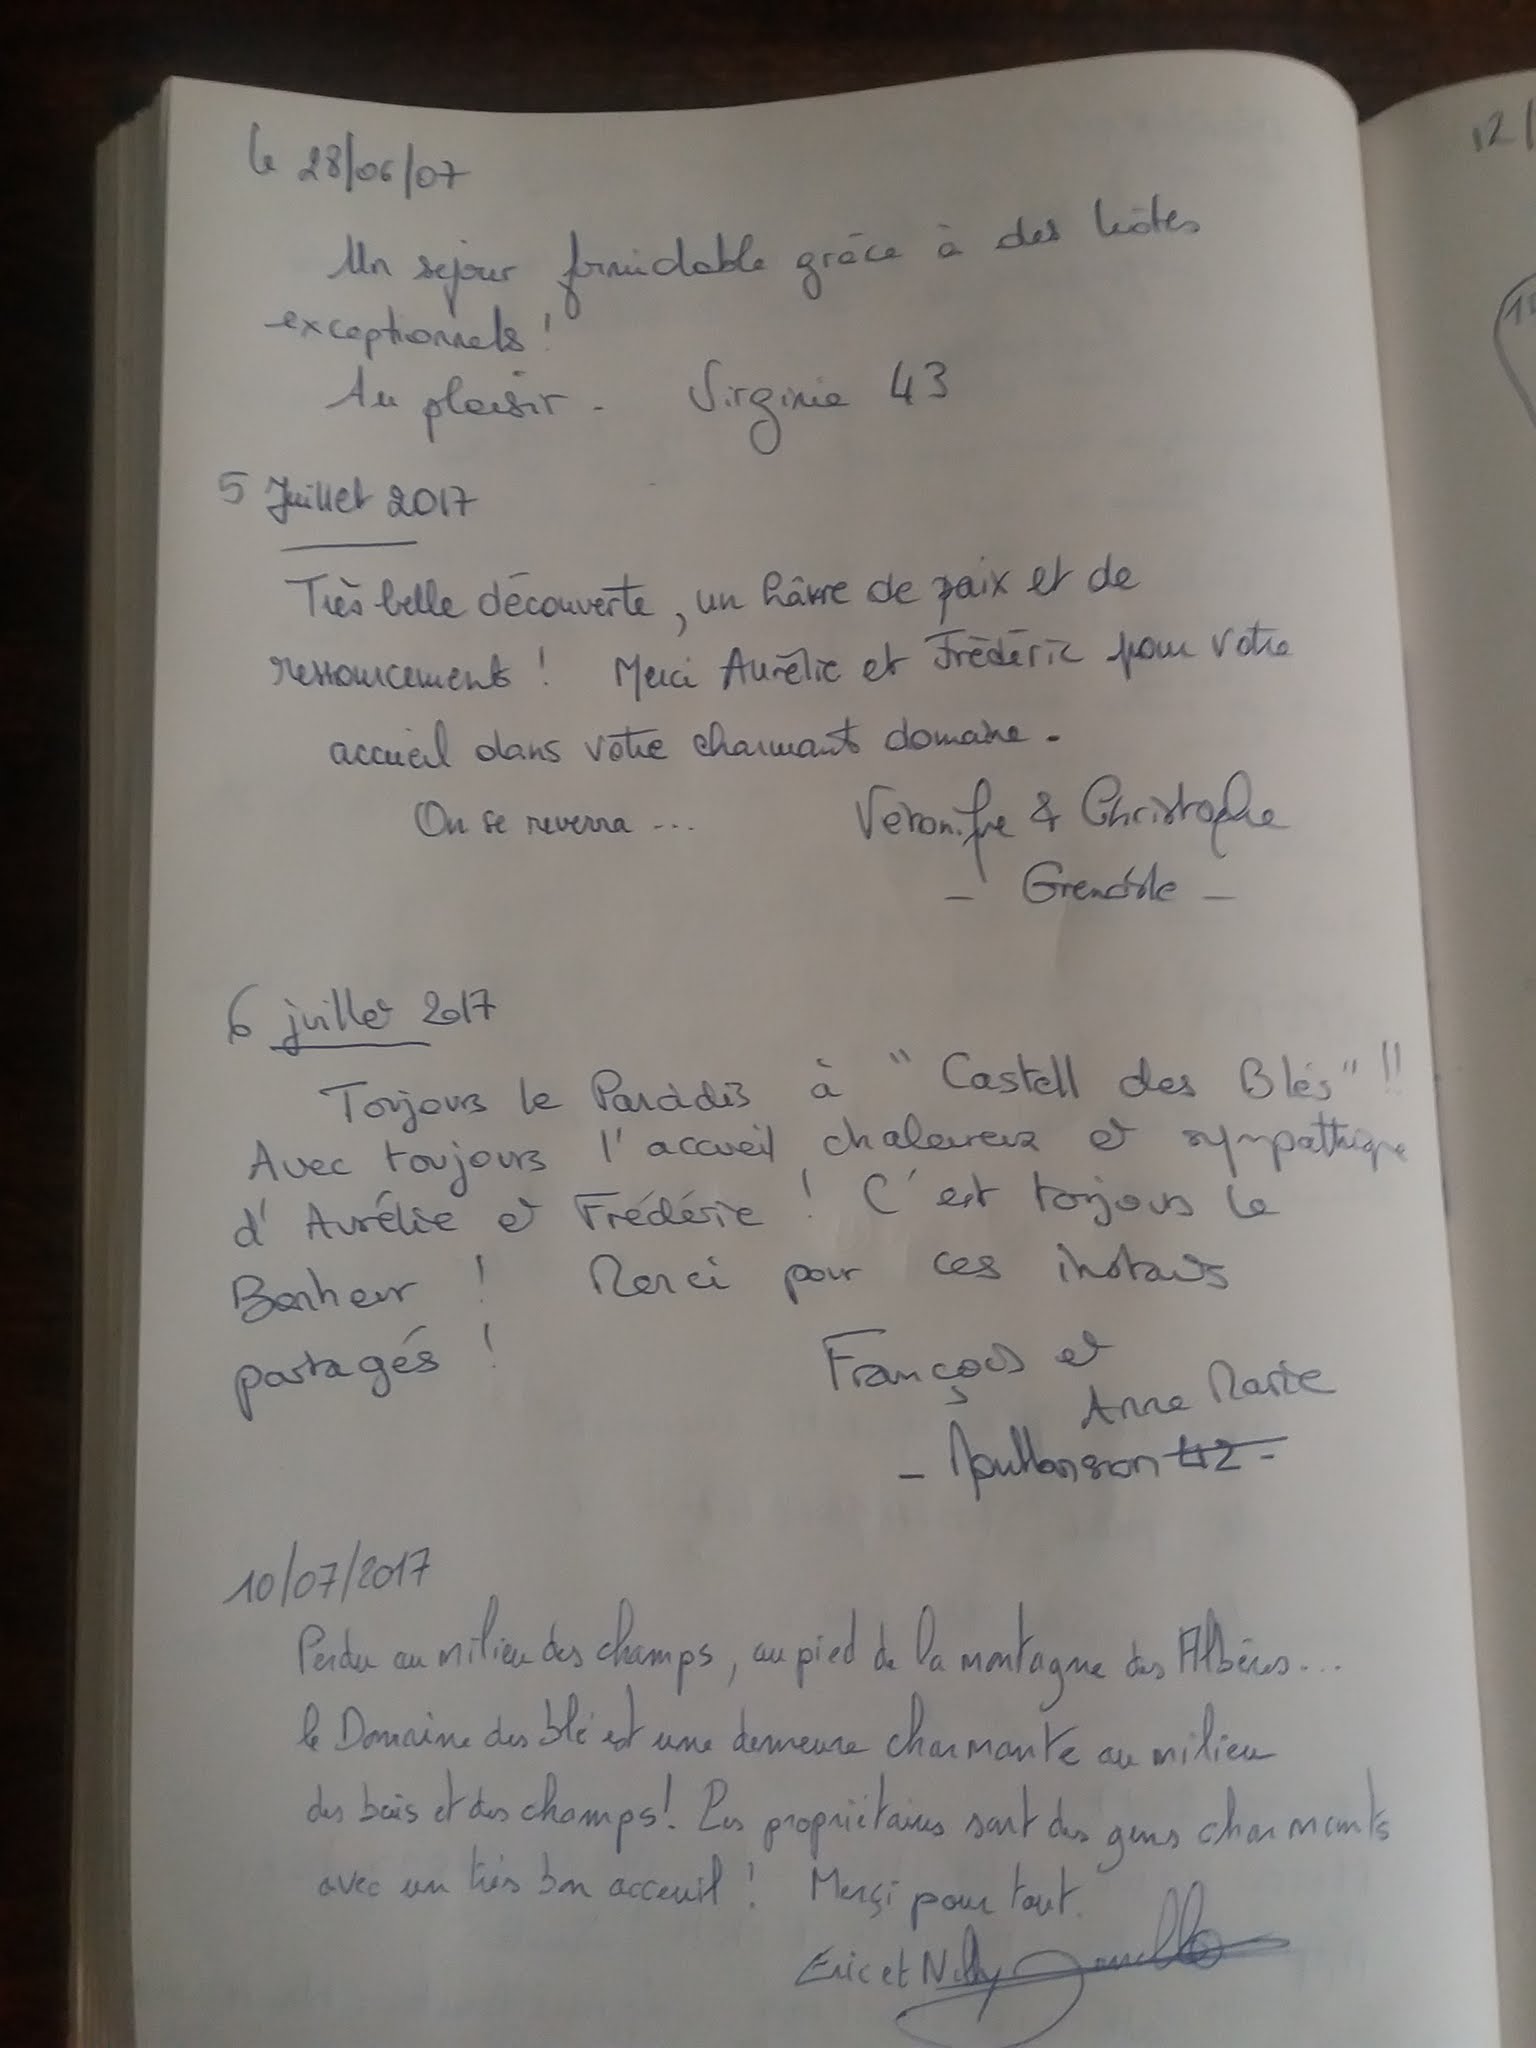 le 28/06/07
Un séjour formidable grâce à des hôtes
exceptionnels !
Au plaisir. Virginie 43
5 Juillet 2017
Très belle découverte, un hâvre de paix et de
ressourcements ! Merci Aurélie et Frédéric pour votre
accueil dans votre charmant domaine.
On se reverra ...
Véronique & Christophe
- Grenoble -
6 juillet 2017
Toujours le Paradis à "Castell des Blés" !!
Avec toujours l'accueil chaleureux et sympathique
d'Aurélie et Frédéric ! C'est toujours le
Bonheur ! Merci pour ces instants
partagés !
François et
Anne Marie
- 42 -
10/07/2017
Perdu au milieu des champs, au pied de la montagne des Albères...
le Domaine des blé est une demeure charmante au milieu
des bois et des champs ! Les propriétaires sont des gens charmants
avec un très bon acceuil ! Merçi pour tout.
Eric et Nelly
12/